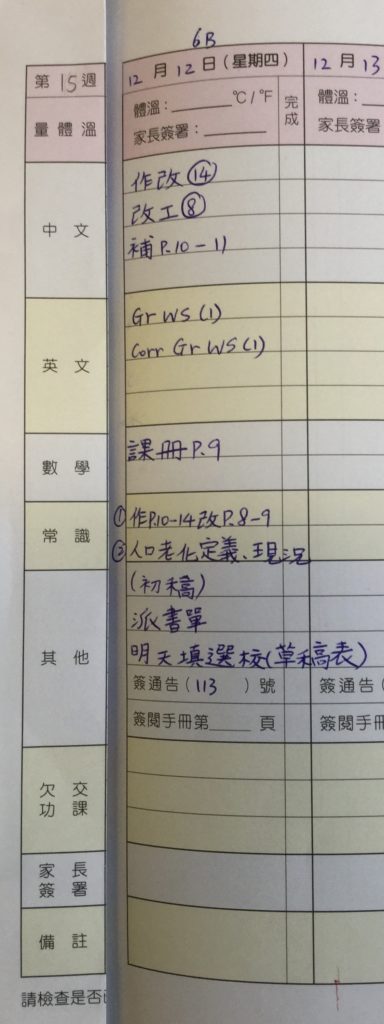 6B
第15週
12月12日(星期四)
12月13
量體溫
體溫：______℃/℉
家長簽署：______
完成
體溫：
家長簽署
中文
作改⑭
改工⑧
補P.10-11
英文
Gr WS (1)
Corr Gr WS (1)
數學
課冊P.9
常識
①作P.10-14改P.8-9
②人口老化定義、現況
(初稿)
其他
派書單
明天填選校(草稿表)
簽通告(113)號
簽通告(
簽閱手冊第____頁
簽閱手冊
欠交功課
家長簽署
備註
請檢查是否已